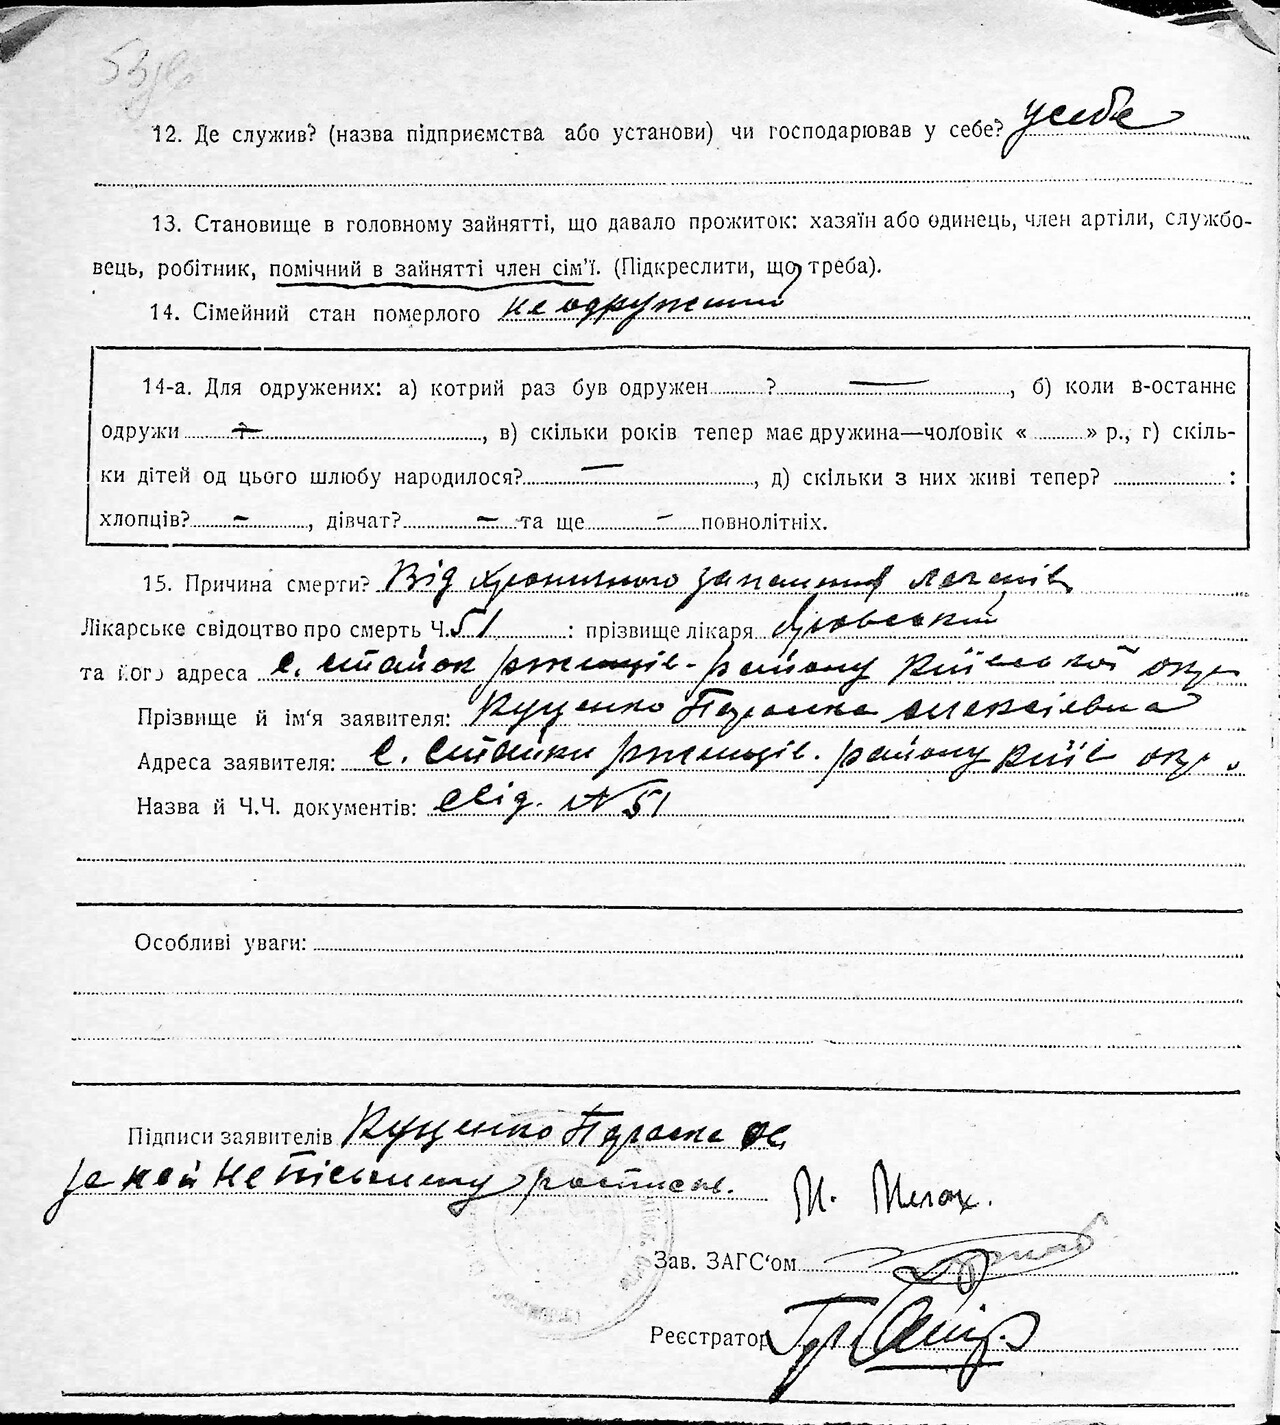 12. Де служив? (назва підприємства або установи) чи господарював у себе? у себе
13. Становище в головному зайнятті, що давало прожиток: хазяїн або одинець, член артіли, службо-
вець, робітник, помічний в зайнятті член сім'ї. (Підкреслити, що треба).
14. Сімейний стан померлого не одружений
14-а. Для одружених: а) котрий раз був одружен ? —, б) коли в-останнє
одружи —, в) скільки років тепер має дружина—чоловік « » р., г) скіль-
ки дітей од цього шлюбу народилося? —, д) скільки з них живі тепер? :
хлопців? –, дівчат? – та ще – повнолітніх.
15. Причина смерти? Від хронічного запалення легенів
Лікарське свідоцтво про смерть Ч. 51 : прізвище лікаря
та його адреса с. Стайок ржищів. району Київської окр
Прізвище й ім'я заявителя: Куценко Параска Алексієвна
Адреса заявителя: с. Стайки ржищів. району Київ окр.
Назва й Ч.Ч. документів: Свід. № 51
Особливі уваги:
Підписи заявителів Куценко Параска
за ней неписьмену расписав. М.
Зав. ЗАГС'ом
Реєстратор